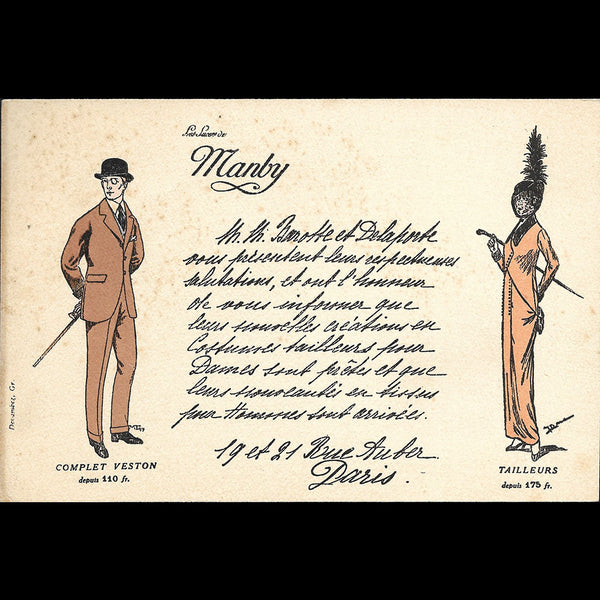 Manby
M. M. Barotte et Delaporte
vous présentent leurs respectueuses
salutations, et ont l'honneur
de vous informer que
leurs nouvelles créations en
Costumes tailleurs pour
Dames sont prêtes et que
leurs nouveautés en tissus
pour Hommes sont arrivées.
19 et 21 Rue Auber
Paris.
COMPLET VESTON
depuis 110 fr.
TAILLEURS
depuis 175 fr.
Devambez, Gr.